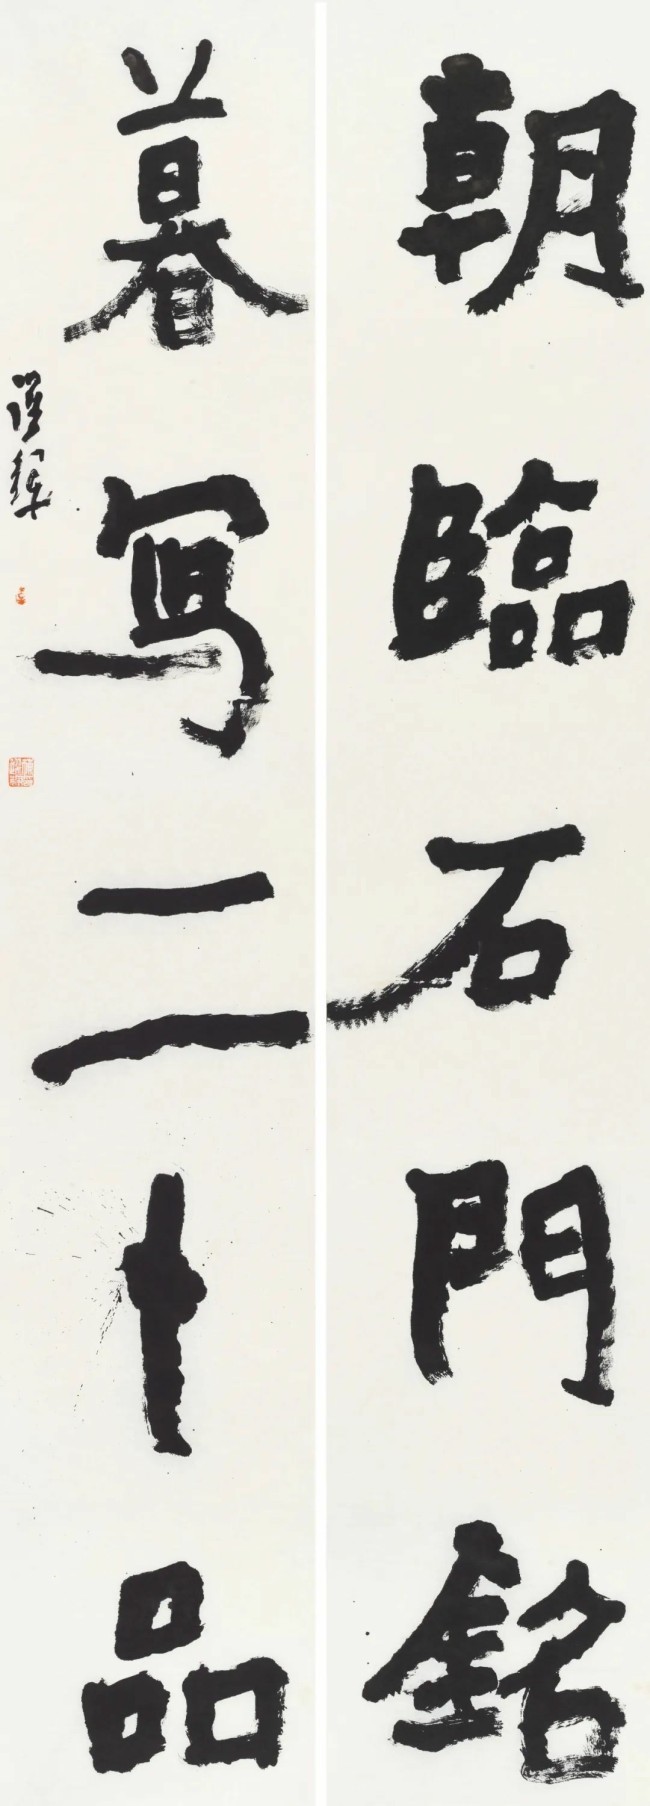 朝臨石門銘
暮写二十品